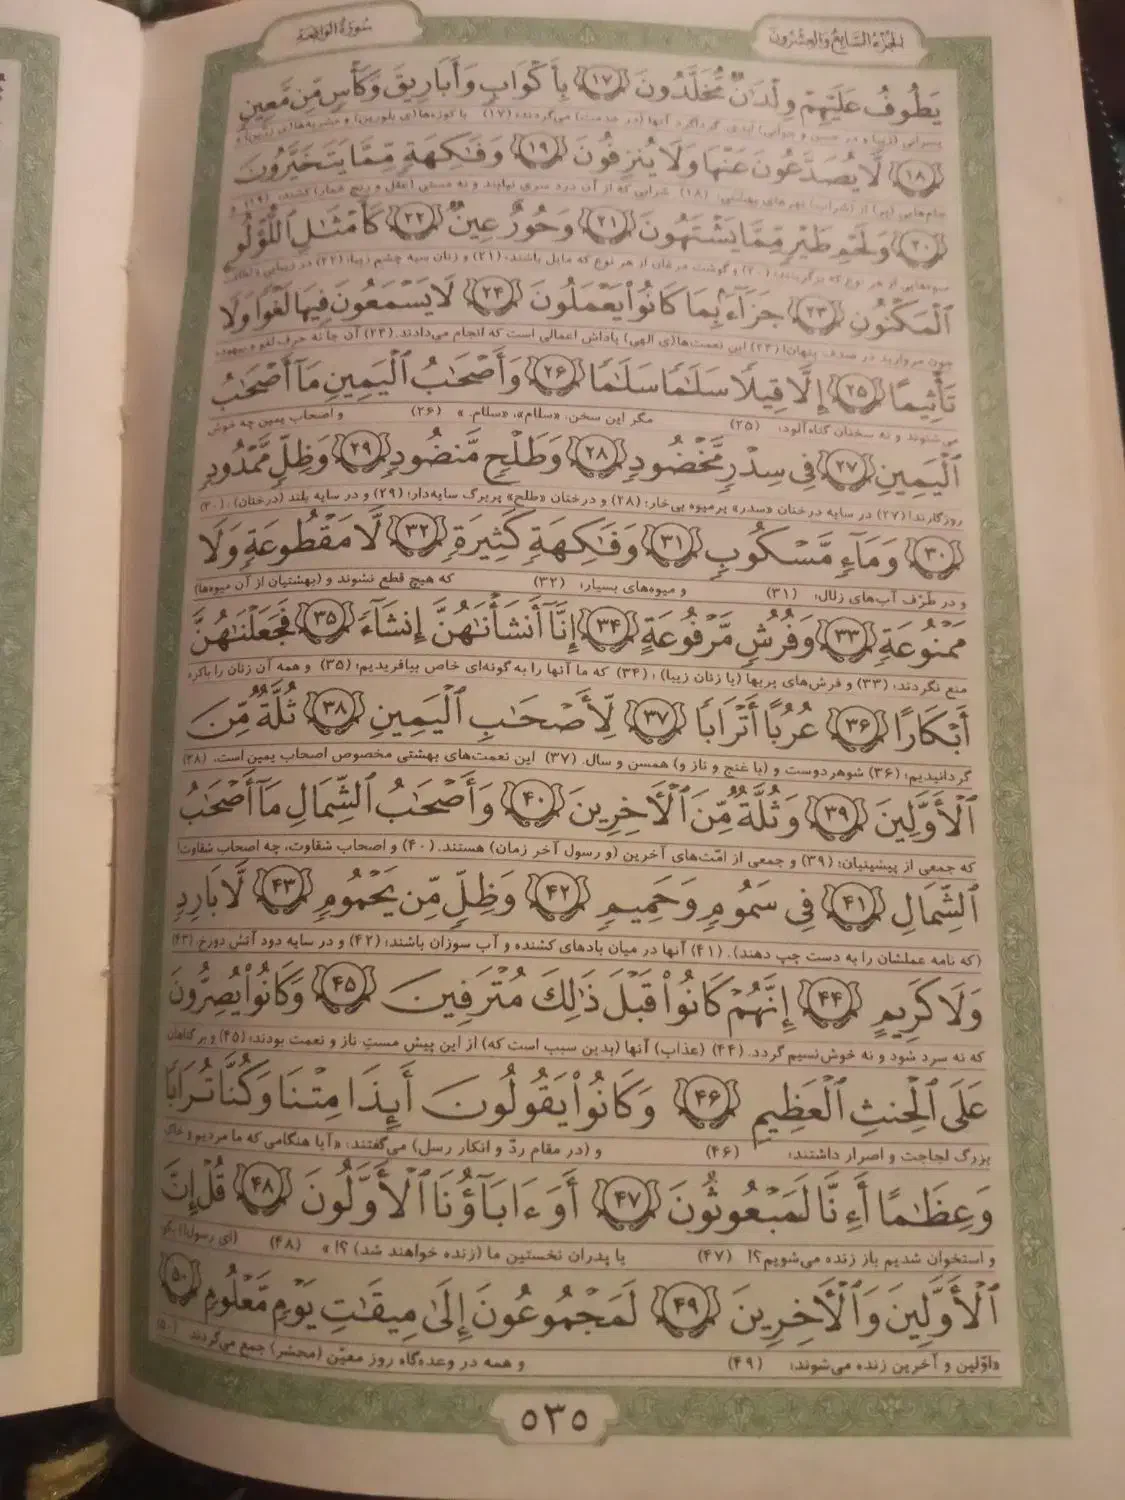 الجزء السابع والعشرون
سورة الواقعة
يَطُوفُ عَلَيْهِمْ وِلْدَانٌ مُّخَلَّدُونَ ﴿١٧﴾ بِأَكْوَابٍ وَأَبَارِيقَ وَكَأْسٍ مِّن مَّعِينٍ
پسرانی (زیبا و در حسن و جوانی) ابدی گرداگرد آنها (در خدمت) می‌گردند؛ (۱۷) با کوزه‌ها(ی بلورین) و مشربه‌ها(ی زرین) و
﴿١٨﴾ لَّا يُصَدَّعُونَ عَنْهَا وَلَا يُنزِفُونَ ﴿١٩﴾ وَفَاكِهَةٍ مِّمَّا يَتَخَيَّرُونَ
جام‌هایی (پر) از (شراب) نهرهای بهشتی؛ (۱۸) شرابی که از آن درد سری نیابند و نه مستی (عقل و رنج خمار) کشند؛ (۱۹) و
﴿٢٠﴾ وَلَحْمِ طَيْرٍ مِّمَّا يَشْتَهُونَ ﴿٢١﴾ وَحُورٌ عِينٌ ﴿٢٢﴾ كَأَمْثَالِ اللُّؤْلُؤِ
میوه‌هایی از هر نوع که برگزینند؛ (۲۰) و گوشت مرغان از هر نوع که مایل باشند؛ (۲۱) و زنان سیه چشم زیبا؛ (۲۲) در زیبایی
الْمَكْنُونِ ﴿٢٣﴾ جَزَاءً بِمَا كَانُوا يَعْمَلُونَ ﴿٢٤﴾ لَا يَسْمَعُونَ فِيهَا لَغْوًا وَلَا
چون مروارید در صدف پنهان! (۲۳) این نعمت‌ها(ی الهی) پاداش اعمالی است که انجام می‌دادند. (۲۴) آن جا نه حرف لغو و بیهوده
تَأْثِيمًا ﴿٢٥﴾ إِلَّا قِيلًا سَلَامًا سَلَامًا ﴿٢٦﴾ وَأَصْحَابُ الْيَمِينِ مَا أَصْحَابُ
می‌شنوند و نه سخنان گناه‌آلود؛ (۲۵) مگر این سخن: «سلام»، «سلام.» (۲۶) و اصحاب یمین چه خوش
الْيَمِينِ ﴿٢٧﴾ فِي سِدْرٍ مَّخْضُودٍ ﴿٢٨﴾ وَطَلْحٍ مَّنضُودٍ ﴿٢٩﴾ وَظِلٍّ مَّمْدُودٍ
روزگارند! (۲۷) در سایه درختان «سدر» پرمیوه بی‌خار؛ (۲۸) و درختان «طلح» پربرگ سایه‌دار؛ (۲۹) و در سایه بلند (درختان)، (۳۰)
﴿٣٠﴾ وَمَاءٍ مَّسْكُوبٍ ﴿٣١﴾ وَفَاكِهَةٍ كَثِيرَةٍ ﴿٣٢﴾ لَّا مَقْطُوعَةٍ وَلَا
و در طرف آب‌های زلال؛ (۳۱) و میوه‌های بسیار؛ (۳۲) که هیچ قطع نشوند و (بهشتیان از آن میوه‌ها)
مَمْنُوعَةٍ ﴿٣٣﴾ وَفُرُشٍ مَّرْفُوعَةٍ ﴿٣٤﴾ إِنَّا أَنشَأْنَاهُنَّ إِنشَاءً ﴿٣٥﴾ فَجَعَلْنَاهُنَّ
منع نگردند؛ (۳۳) و فرش‌های پربها (یا زنان زیبا)؛ (۳۴) که ما آنها را به گونه‌ای خاص بیافریدیم؛ (۳۵) و همه آن زنان را باکره
أَبْكَارًا ﴿٣٦﴾ عُرُبًا أَتْرَابًا ﴿٣٧﴾ لِّأَصْحَابِ الْيَمِينِ ﴿٣٨﴾ ثُلَّةٌ مِّنَ
گردانیدیم؛ (۳۶) شوهردوست و (با غنج و ناز و) همسن و سال. (۳۷) این نعمت‌های بهشتی مخصوص اصحاب یمین است. (۳۸)
الْأَوَّلِينَ ﴿٣٩﴾ وَثُلَّةٌ مِّنَ الْآخِرِينَ ﴿٤٠﴾ وَأَصْحَابُ الشِّمَالِ مَا أَصْحَابُ
که جمعی از پیشینیان؛ (۳۹) و جمعی از امّت‌های آخرین (و رسول آخر زمان) هستند. (۴۰) و اصحاب شقاوت، چه اصحاب شقاوت!
الشِّمَالِ ﴿٤١﴾ فِي سَمُومٍ وَحَمِيمٍ ﴿٤٢﴾ وَظِلٍّ مِّن يَحْمُومٍ ﴿٤٣﴾ لَّا بَارِدٍ
(که نامه عملشان را به دست چپ دهند). (۴۱) آنها در میان بادهای کشنده و آب سوزان باشند؛ (۴۲) و در سایه دود آتش دوزخ، (۴۳)
وَلَا كَرِيمٍ ﴿٤٤﴾ إِنَّهُمْ كَانُوا قَبْلَ ذَٰلِكَ مُتْرَفِينَ ﴿٤٥﴾ وَكَانُوا يُصِرُّونَ
که نه سرد شود و نه خوش‌نسیم گردد. (۴۴) (عذاب) آنها (بدین سبب است که) از این پیش مستِ ناز و نعمت بودند؛ (۴۵) و بر گناهان
عَلَى الْحِنثِ الْعَظِيمِ ﴿٤٦﴾ وَكَانُوا يَقُولُونَ أَئِذَا مِتْنَا وَكُنَّا تُرَابًا
بزرگ لجاجت و اصرار داشتند؛ (۴۶) و (در مقام ردّ و انکار رسل) می‌گفتند: «آیا هنگامی که ما مردیم و خاک
وَعِظَامًا أَإِنَّا لَمَبْعُوثُونَ ﴿٤٧﴾ أَوَآبَاؤُنَا الْأَوَّلُونَ ﴿٤٨﴾ قُلْ إِنَّ
و استخوان شدیم باز زنده می‌شویم؟! (۴۷) یا پدران نخستین ما (زنده خواهند شد) ؟!» (۴۸) (ای رسول!) بگو
الْأَوَّلِينَ وَالْآخِرِينَ ﴿٤٩﴾ لَمَجْمُوعُونَ إِلَىٰ مِيقَاتِ يَوْمٍ مَّعْلُومٍ ﴿٥٠﴾
«اوّلین و آخرین زنده می‌شوند؛ (۴۹) و همه در وعده‌گاه روز معیّن (محشر) جمع می‌گردند (۵۰)
٥٣٥